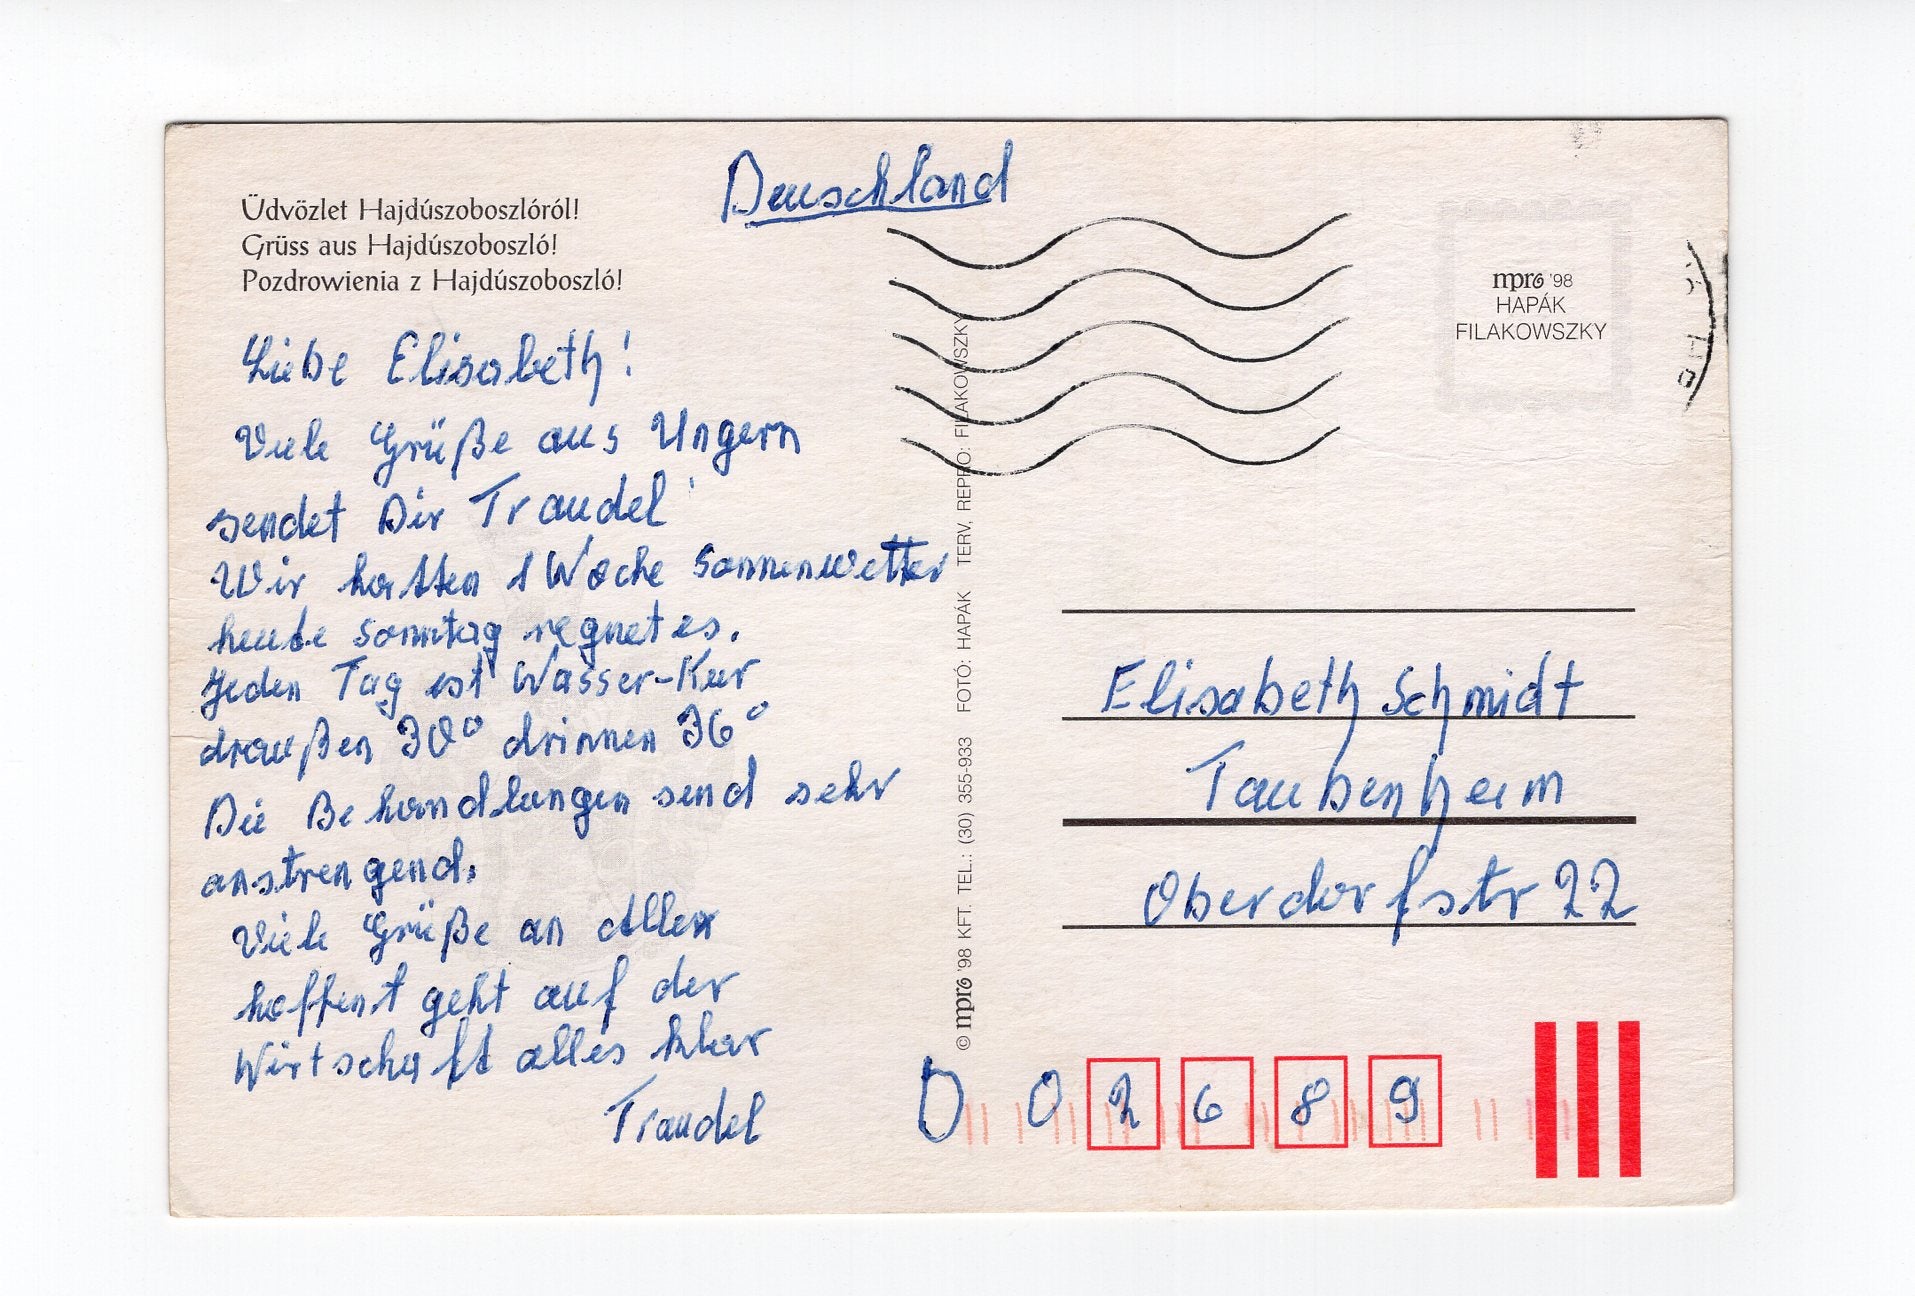 Üdvözlet Hajdúszoboszlóról!
Grüss aus Hajdúszoboszló!
Pozdrowienia z Hajdúszoboszló!
Liebe Elisabeth!
Viele Grüße aus Ungern
sendet Dir Traudel
Wir hatten 1 Woche Sonnenwetter
heute Sonntag regnet es.
Jeden Tag ist Wasser-Kur
draußen 30° drinnen 36°
Die Behandlungen send sehr
anstrengend.
Viele Grüße an Allen
hoffent geht auf der
Wirtschaft alles klar
Traudel
Deuschland
© mpro '98 KFT. TEL.: (30) 355-933 FOTÓ: HAPÁK TERV, REPRO: FILAKOWSZKY
mpro '98
HAPÁK
FILAKOWSZKY
Elisabeth Schmidt
Taubenheim
Oberdorfstr 22
D 02689